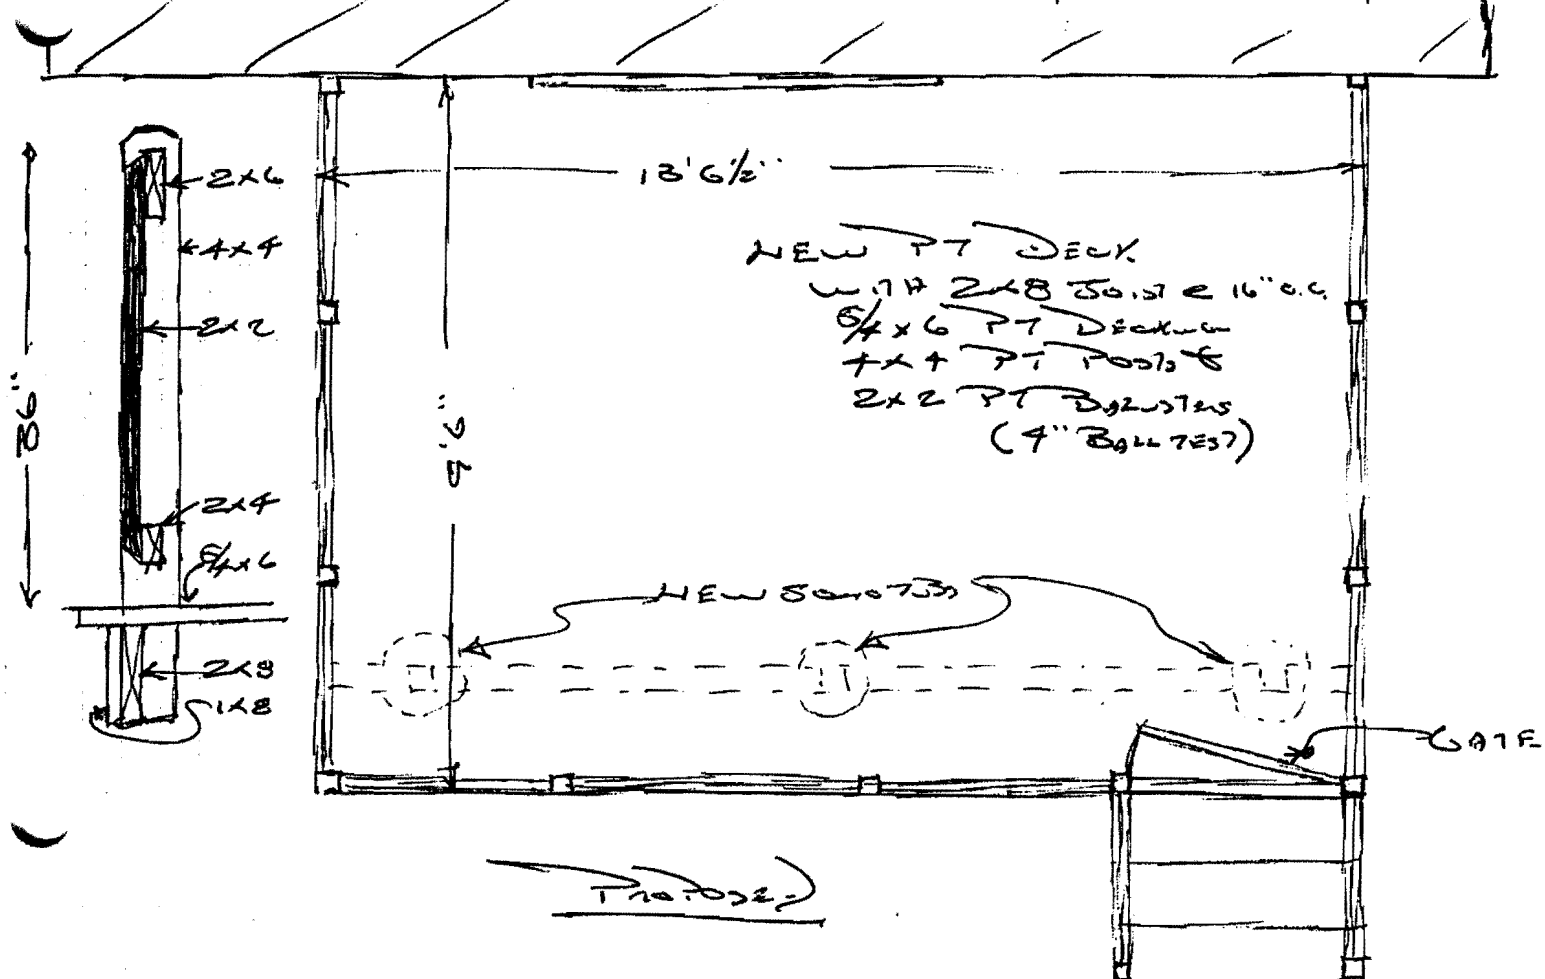 2x6
4x4
2x2
36"
2x4
5/4x6
2x8
1x8
13'6½"
9'6"
NEW PT DECK
WITH 2x8 JOIST @ 16" O.C.
5/4x6 PT DECKING
4x4 PT POSTS &
2x2 PT BALUSTERS
(4" BALL TEST)
NEW SONOTUBES
GATE
PROPOSED